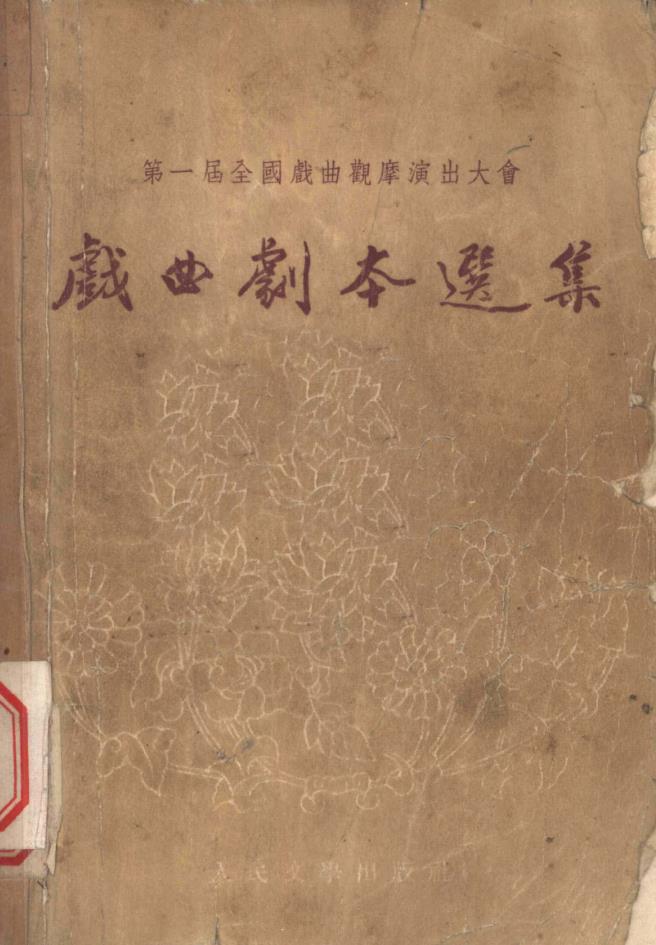 第一屆全國戲曲觀摩演出大會
戲曲劇本選集
人民文學出版社